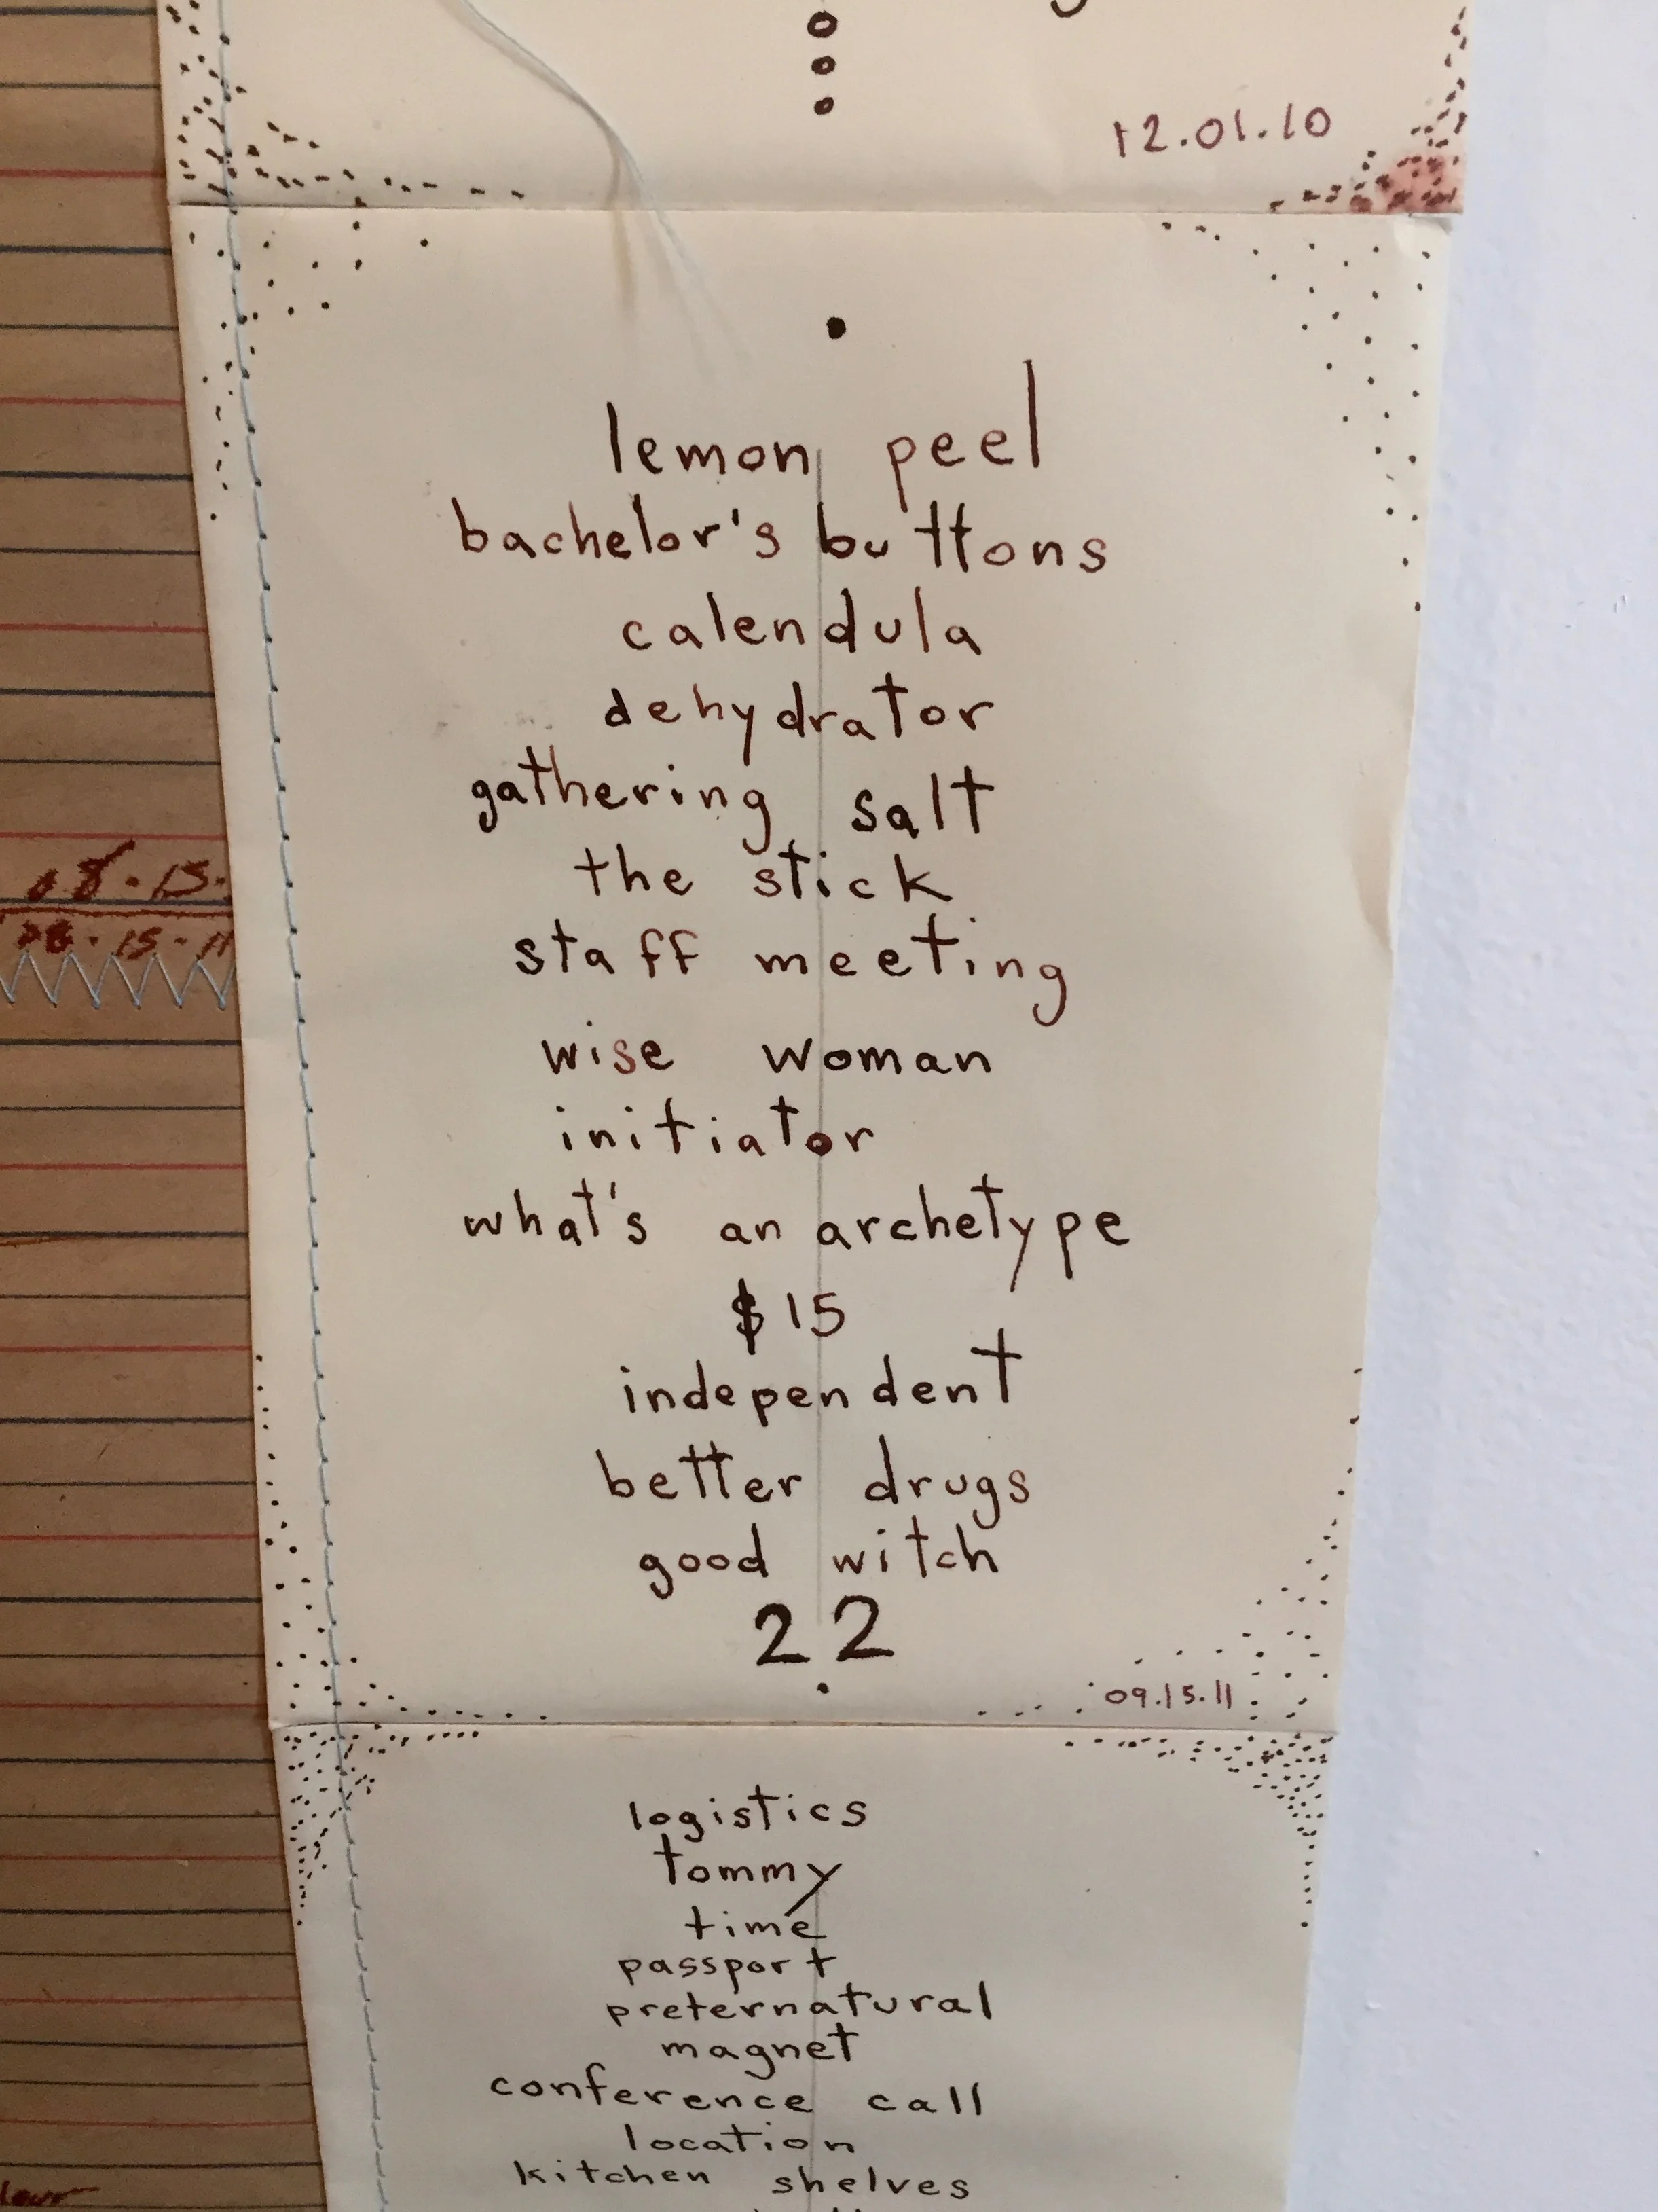 12.01.10
lemon peel
bachelor's buttons
calendula
dehydrator
gathering salt
the stick
staff meeting
wise woman
initiator
what's an archetype
$15
independent
better drugs
good witch
22
09.15.11
logistics
tommy
time
passport
preternatural
magnet
conference call
location
kitchen shelves
08.15.
08.15.11